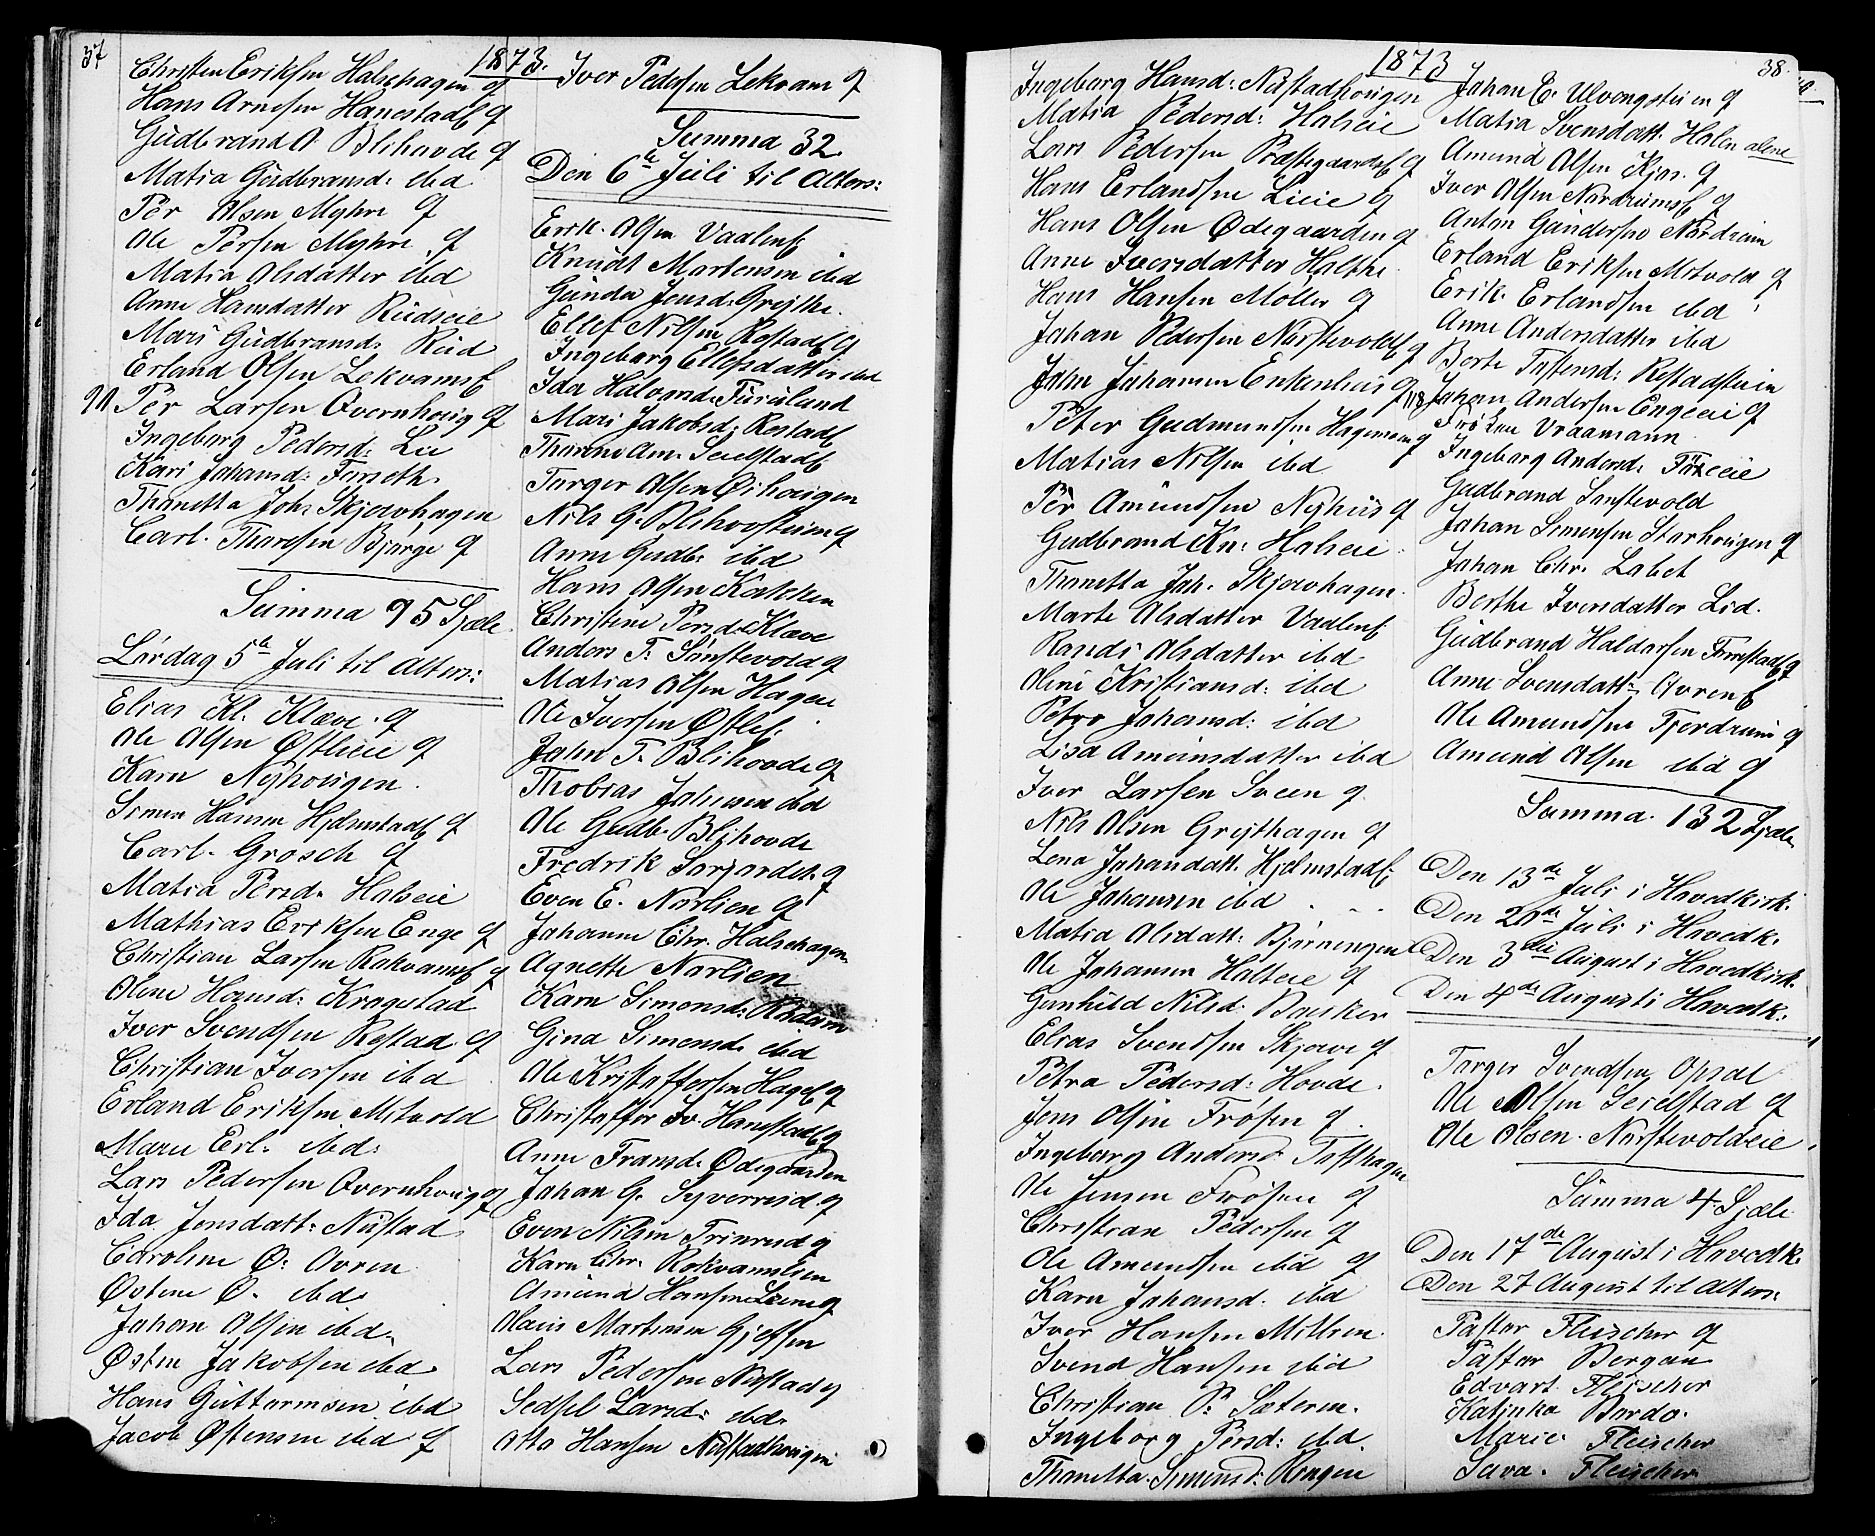 37
1873.
Christen Eriksen Halsehagen g
Hans Arnesen Hanestadb g
Gudbrand A. Blihovde g
Matia Gudbransd: ibd
Per Olsen Myhre g
Ole Persen Myhre g
Matia Olsdatter ibd
Anne Hansdatter Rudseie
Mari Gudbransd: Rud
Erland Olsen Lekvamsb
90 Per Larsen Overnhoug g
Ingeborg Pedersd: Lie
Kari Johansd: Furseth
Thonetta Joh: Skjævhagen
Carl. Thoresen Bjørge g
Summa 95 Sjæle.
Lørdag 5te Juli til Alters:
Elias Kl. Klæve. g
Ole Olsen Østlieie g
Karn Nyhougen.
Simen Hansen Hjelmstadb g
Carl. Grosch g
Matia Persd: Halseie
Mathias Eriksen Enge g
Christian Larsen Rokvamsb g
Oline Hansd: Krogstad
Iver Svendsen Rostad g
Christian Iversen ibd
Erland Eriksen Mitvold
Marn Erl. ibd:
Lars Pedersen Overnhoug g
Ida Jensdatt: Nustad
Caroline Ø: Ovren
Østene Ø. ibd
Johan Olsen ibd.
Østen Jakobsen ibd
Hans Guttormsen ibd
Jacob Østensen ibd g
Iver Pedersen Lekvam g
Summa 32.
Den 6te Juli til Alters:
Erik. Olsen Vaalenb
Knudt Martensen ibd
Gunda Jensd: Grejthe.
Ellef Nilsen Rostadb g
Ingeborg Ellefsdatter ibd
Ida Halvorsd: Furuland
Mari Jakobsd: Rostadb
Thorine Am: Seielstadb
Torger Olsen Øihougen
Nils G. Blihovstuen g
Anne Gudb: ibd
Hans Olsen Kalsken
Christine Persd: Klæve
Anders T. Sønstevold g
Matias Olsen Hagen
Ole Iversen Østlie.
John T. Blihovde g
Thobias Johnsen ibd
Ole Gudb. Blihovde
Fredrik Sorjordet. g
Even E. Norlien g
Johanne Chr. Halsehagen
Agnette Norlien
Karn Simensd: Rudiin
Gina Simensd. ibd
Ole Kristoffersen Hageb g
Christoffer Iv. Hanestadb g
Anne Fransd: Ødegaarden
Johan G. Syverrud g
Even Nilsen Trinrud g
Karn Chr. Rokvamlien
Amund Hansen Leine g
Olaus Martinsen Gjefsen
Lars Pedersen Nustad g
Sedsel Larsd: ibd.
Otto Hansen Nustadhougen
38.
1873
Ingeborg Hansd: Nustadhougen
Matia Pedersd: Halseie
Lars Pedersen Præstegaardsb g
Hans Erlandsen Lieie g
Hans Olsen Ødegaarden g
Anne Iversdatter Holthe
Hans Hansen Moller g
Johan Pedersen Norstevoldb g
John Johansen Enkenhus g
Peter Gudmundsen Hageneie g
Matias Nilsen ibd
Per Amundsen Nyhus g
Gudbrand Kn: Halseie.
Thonetta Joh. Skjævhagen.
Marte Olsdatter Vaalenb
Randi Olsdatter ibd
Oline Kristiansd: ibd
Petra Johansd: ibd
Lisa Amunsdatter ibd
Iver Larsen Sveen g.
Nils Olsen Grejthagen g
Lena Johandatt: Hjelmstadb.
Ole Johansen ibd . - -
Matia Olsdatt: Bjørningen
Ole Johansen Holteie g
Gunhild Nilsd: Bæsker
Elias Svendsen Skjæve g
Petra Pedersd: Hovde.
Jens Olsen Frøsen g.
Ingeborg Andersd: Tofthagen
Ole Jensen Frøsen g
Christian Pedersen g
Ole Amundsen ibd g
Karn Johansd: ibd
Iver Hansen Millien.
Svend Hansen ibd
Christian P. Sæteren.
Ingeborg Persd: ibd.
Thonetta. Simensd: Kragen
Johan E. Ulvengstuen g
Matia Svensdatt. Halen alene
Amund Olsen Kjos. g
Iver Olsen Nordrumsb g
Anton Gundersen Nordrum
Erland Eriksen Mitvold g
Erik. Erlandsen ibd
Anne Andersdatter ibd
Berte Tostensd: Rostadstuen
118 Johan Andersen Engeeie g
Frøken Vraamann
Ingeborg Andersd: Foseie
Gudbrand Sønstevold
Johan Simensen Storhougen g
Johan Chr. Labet
Berthe Iversdatter Lid.
Gudbrand Haldorsen Tomstadb g
Anne Svensdatt: Ovrenb
Ole Amundsen Fjordrum g
Amund Olsen ibd g
Summa. 132 Sjæle
Den 13de Juli i Hovedkirk.
Den 20de Juli i Hovedk.
Den 3die August i Hovedkirk.
Den 4de August i Hovedk.
Torger Svendsen Opsal
Ole Olsen Seielstad g
Ole Olsen. Norstevoldeie
Summa 4 Sjæle
Den 17de August i Hovedk.
Den 27 August til Alters:
Pastor Fleischer g
Pastor Bergan
Edvart Fleischer
Katinka Bordo.
Marie. Fleischer
Sara. Fleischer